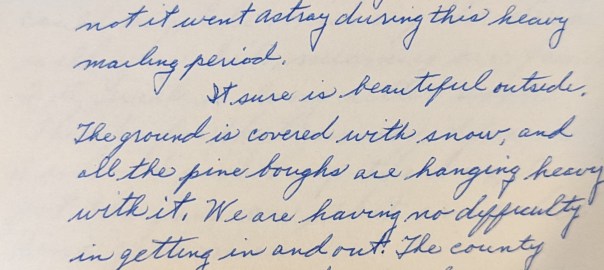 not it went astray during this heavy
mailing period.
It sure is beautiful outside.
The ground is covered with snow, and
all the pine boughs are hanging heavy
with it. We are having no difficulty
in getting in and out. The county